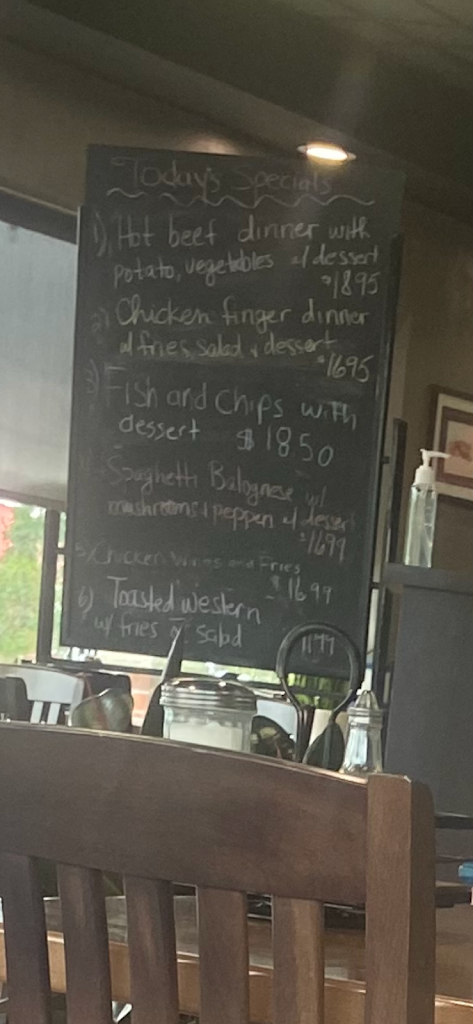 Today's Specials
1) Hot beef dinner with
potato, vegetables w/ dessert
$1895
2) Chicken finger dinner
w/ fries, salad & dessert
$1695
3) Fish and chips with
dessert $18.50
Spaghetti Balognese w/
mushrooms & peppers w/ dessert
$1699
5) Chicken Wings and Fries
$16.99
6) Toasted western
w/ fries or salad 11.99